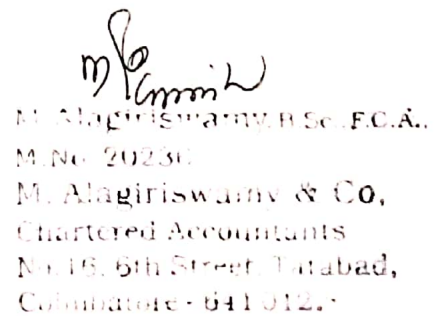 M. Alagiriswamy, B.Sc., F.C.A.,
M.No. 20230
M. Alagiriswamy & Co,
Chartered Accountants
No.16, 6th Street, Tatabad,
Coimbatore - 641 012.